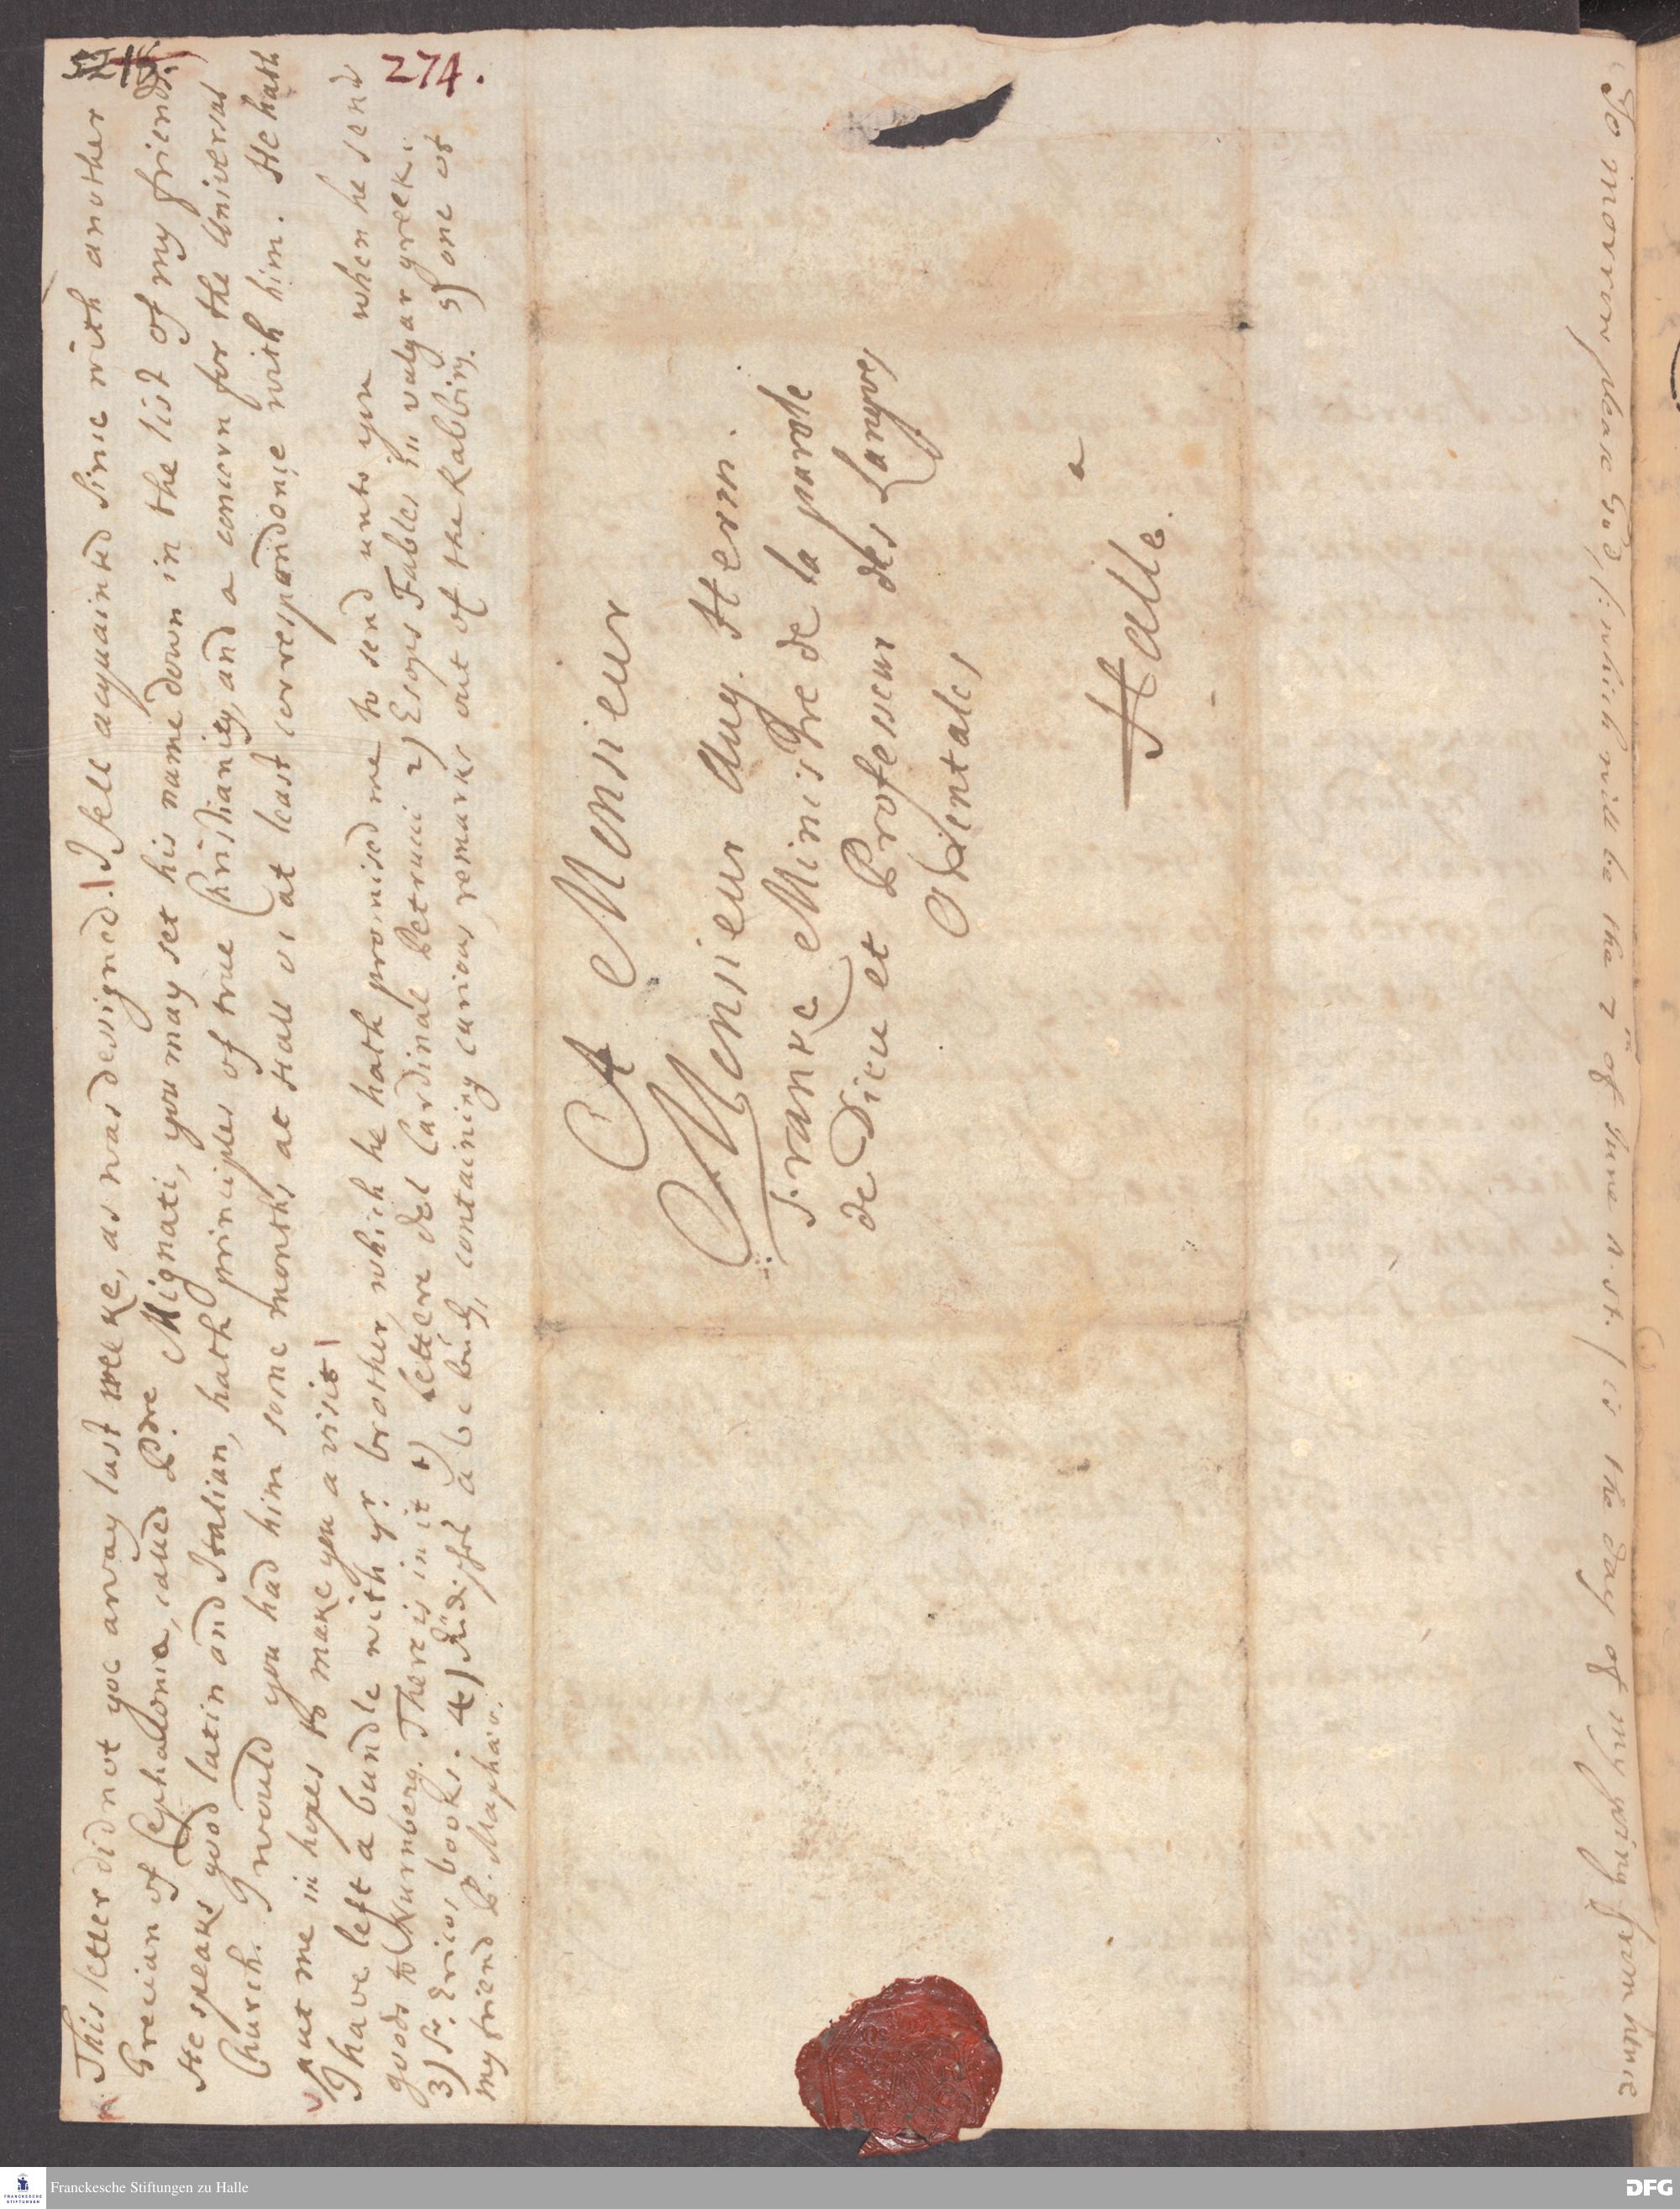 5218.
274.
This letter did not goe away last weeke, as was designed. I kell acquainted since with another
Grecian of Cephalonie, called Pdre Mignati, you may set his name down in the list of my friends.
He speaks good latin and Italian, hath principles of true Christianity, and a concern for the Universal
Church. I would you had him some months at Hall or at least correspondonie with him. He hath
put me in hopes to make you a visit
I have left a bundle with yr. brother, which he hath promised me to send unto you when he send
goods to Nurnberg. There is in it 1) Lettere del Cardinal Petrucci 2) Esops Fables in vulgar greek:
3) Fr. Ericos books. 4) Jüdisch a be buch, containing curious remarks out of the Rabbins. 5) one of
my friend P. Maphaio.
A Monsieur
Monsieur Aug. Herm.
Franke Ministre de la parole
de Dieu et Professeur des Langves
Orientales
a
Halle.
To morrow please God, (: which will be the 7 of June n. st.) is the day of my going from hence
Franckesche Stiftungen zu Halle
FRANCKESCHE
STIFTUNGEN
DFG